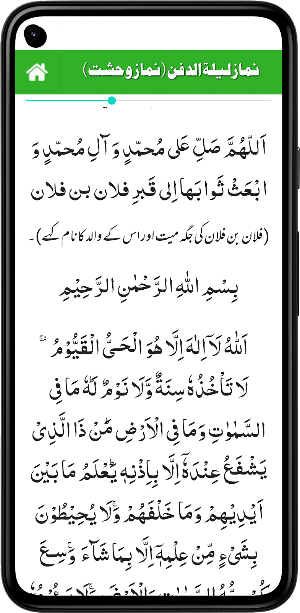 نماز لیلۃ الدفن (نماز وحشت)
اَللّٰهُمَّ صَلِّ عَلٰی مُحَمَّدٍ وَ آلِ مُحَمَّدٍ وَ
ابْعَثْ ثَوابَها اِلی قَبرِ فلان بن فلان
(فلاں بن فلاں کی جگہ میت اور اس کے والد کا نام کہے)۔
بِسْمِ اللهِ الرَّحْمٰنِ الرَّحِيْمِ
اَللهُ لَآ اِلٰهَ اِلَّا هُوَ الْحَيُّ الْقَيُّوْمُ ۚ
لَا تَاْخُذُهٗ سِنَةٌ وَّلَا نَوْمٌ لَهٗ مَا فِي
السَّمٰوٰتِ وَمَا فِي الْاَرْضِ مَنْ ذَا الَّذِيْ
يَشْفَعُ عِنْدَهٗٓ اِلَّا بِاِذْنِهٖ يَعْلَمُ مَا بَيْنَ
اَيْدِيْهِمْ وَمَا خَلْفَهُمْ وَلَا يُحِيْطُوْنَ
بِشَيْءٍ مِّنْ عِلْمِهٖٓ اِلَّا بِمَا شَآءَ وَسِعَ